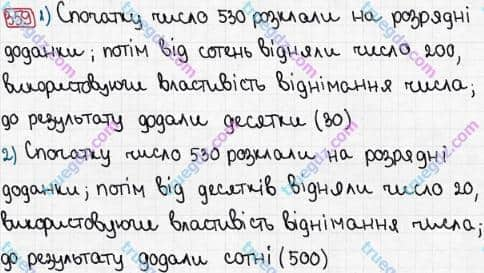 359 1) Спочатку число 530 розклали на розрядні
доданки; потім від сотень відняли число 200,
використовуючи властивість віднімання числа;
до результату додали десятки (30)
2) Спочатку число 530 розклали на розрядні
доданки; потім від десятків відняли число 20,
використовуючи властивість віднімання числа;
до результату додали сотні (500)